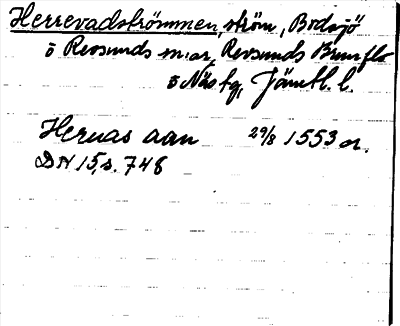 Herrevadströmmen, ström, Bodsjö
o Revsunds m:ar, Revsunds Brunflo
o Näs tg, Jämtl. l.
Heruas aan 29/8 1553 or.
DN 15, s. 748